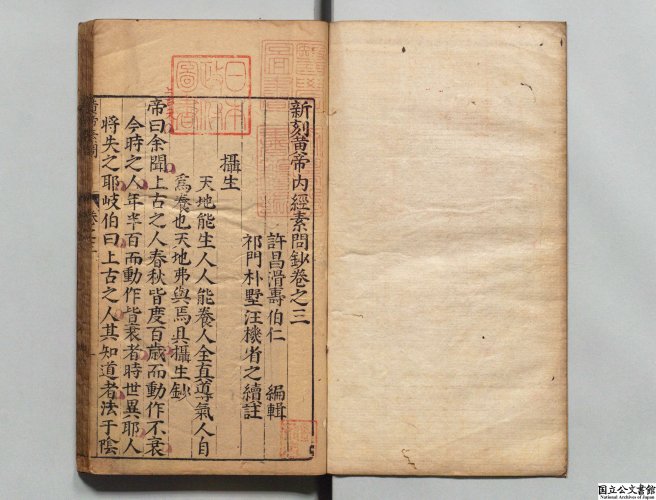 新刻黄帝内經素問鈔卷之三
許昌滑壽伯仁　編輯
祁門朴墅汪機省之續註
攝生
天地能生人人能養人全真導氣人自
爲養也天地弗與焉具攝生鈔
帝曰余聞上古之人春秋皆度百歲而動作不衰
今時之人年半百而動作皆衰者時世異耶人
將失之耶岐伯曰上古之人其知道者法于陰
日本
政府
圖書
国立公文書館
National Archives of Japan